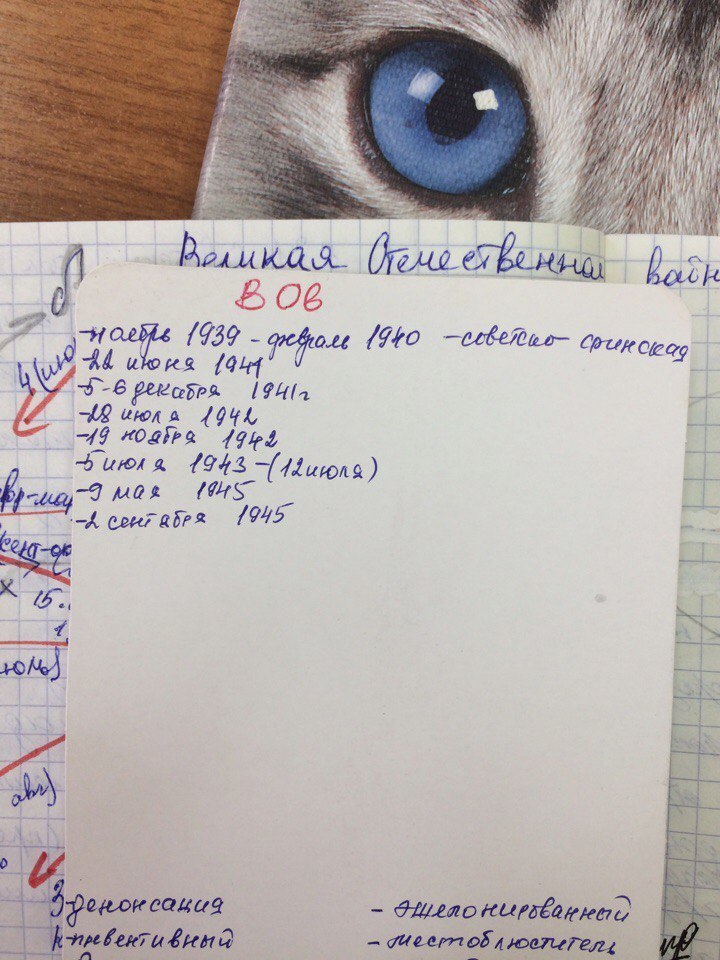 Великая Отечественная войн
ВОв
-ноябрь 1939 - февраль 1940 -советско-финская
-22 июня 1941
-5-6 декабря 1941г
-28 июля 1942
-19 ноября 1942
-5 июля 1943-(12июля)
-9 мая 1945
-2 сентября 1945
4(ию
15.
авг)
-денонсация - эшелонированный
-превентивный -местоблюститель